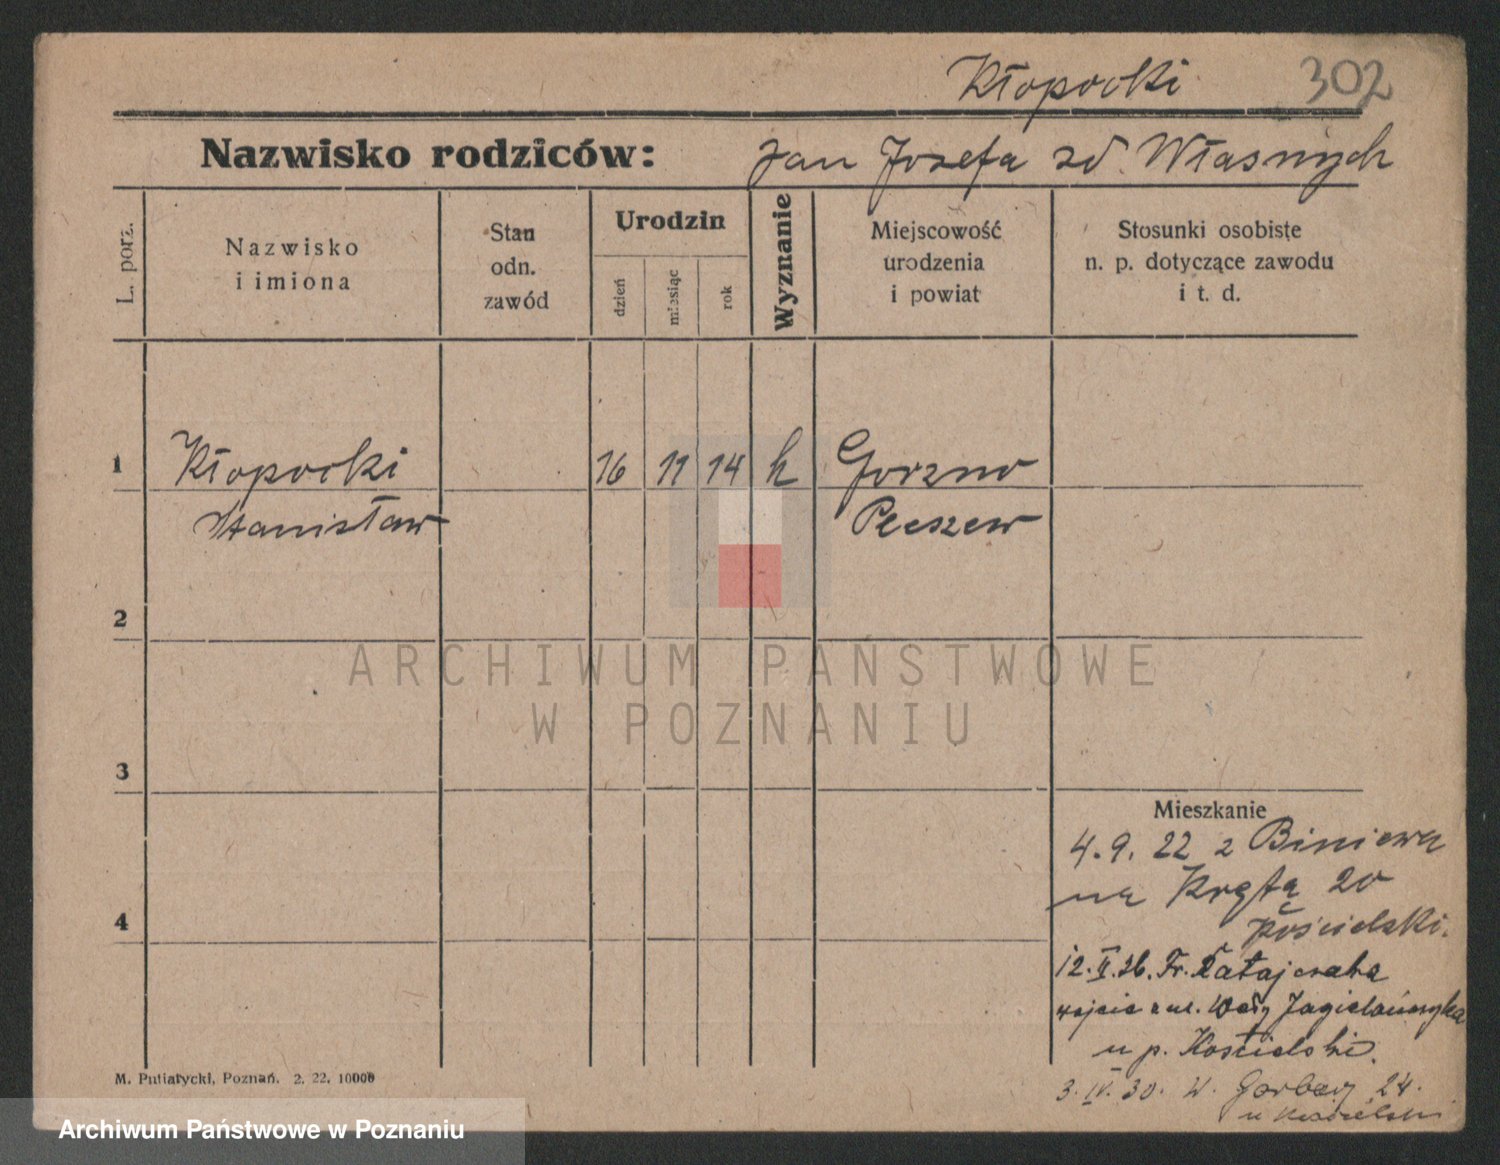 Kłopocki 302
Nazwisko rodziców: Jan Józefa zd. Własnych
L. porz.
Nazwisko
i imiona
Stan
odn.
zawód
Urodzin
dzień
miesiąc
rok
Wyznanie
Miejscowość
urodzenia
i powiat
Stosunki osobiste
n. p. dotyczące zawodu
i t. d.
1 Kłopocki 16 11 14 k Gorzno
Stanisław Pleszew
2
ARCHIWUM PAŃSTWOWE
W POZNANIU
3
Mieszkanie
4. 9. 22 z Biniewa
na Krętą 20
Kościelski.
4
12. II. 26. Fr. Ratajczaka
wejście z ul. Wały Jagielońskie
u p. Kościelski.
3. IV. 30. W. Garbary 24.
u Kościelski
M. Putiatycki, Poznań. 2. 22. 10000
Archiwum Państwowe w Poznaniu